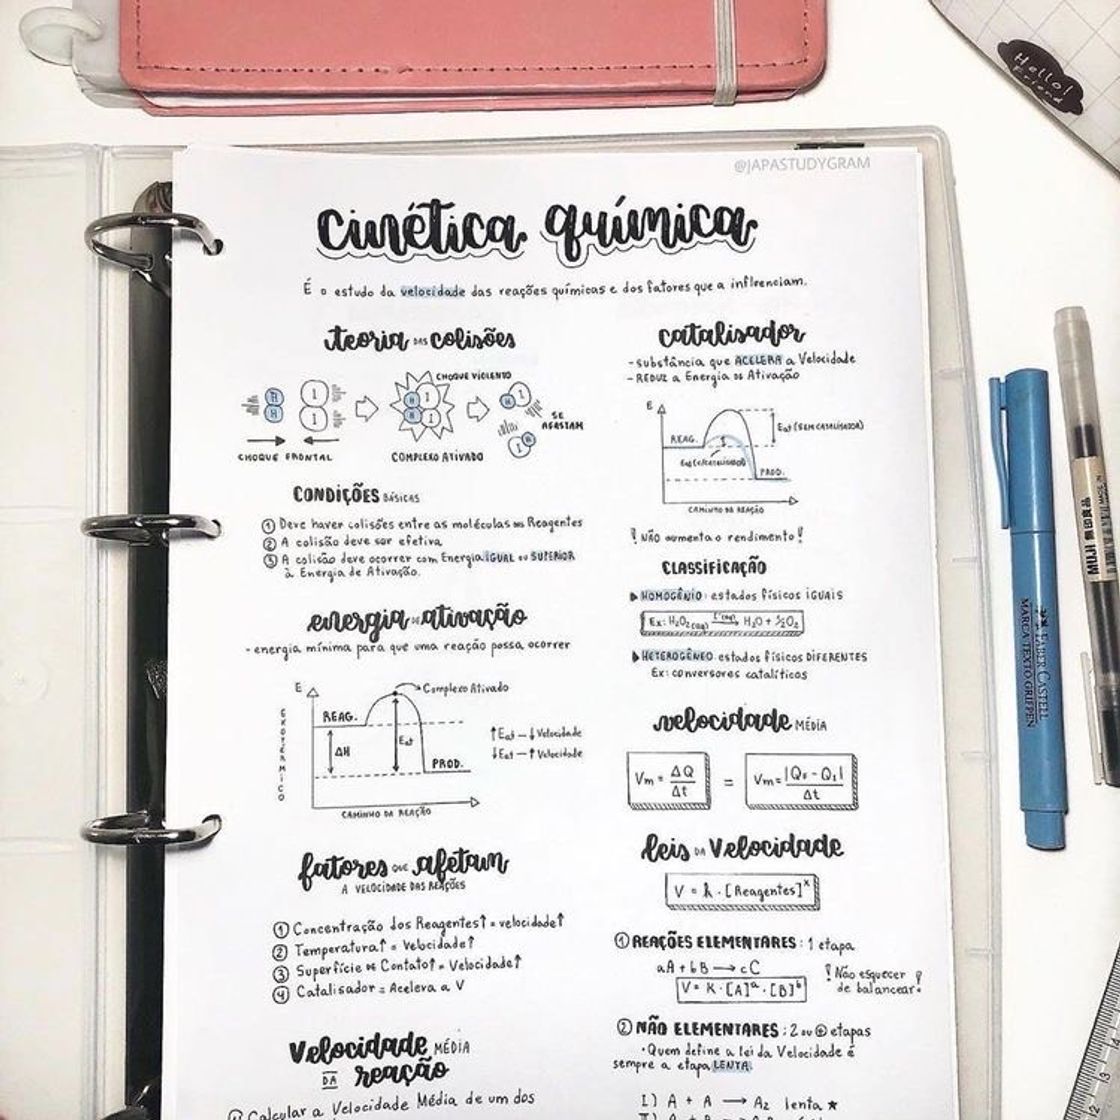 Hello!
Friend
@JAPASTUDYGRAM
cinética química
É o estudo da velocidade das reações químicas e dos fatores que a influenciam.
teoria DAS colisões
H I
H I
CHOQUE FRONTAL
CHOQUE VIOLENTO
H I
H I
COMPLEXO ATIVADO
H I
I H
SE
AFASTAM
CONDIÇÕES BÁSICAS
① Deve haver colisões entre as moléculas dos Reagentes
② A colisão deve ser efetiva
③ A colisão deve ocorrer com Energia IGUAL ou SUPERIOR
à Energia de Ativação.
energia de ativação
- energia mínima para que uma reação possa ocorrer
E
Complexo Ativado
EXOTÉRMICO
REAG.
ΔH
Eat
PROD.
CAMINHO DA REAÇÃO
↑Eat - ↓Velocidade
↓Eat - ↑Velocidade
fatores QUE afetam
A VELOCIDADE DAS REAÇÕES
① Concentração dos Reagentes↑ = velocidade↑
② Temperatura↑ = Velocidade↑
③ Superfície de Contato↑ = Velocidade↑
④ Catalisador = Acelera a V
Velocidade MÉDIA
DA reação
Calcular a Velocidade Média de um dos
catalisador
- substância que ACELERA a Velocidade
- REDUZ a Energia de Ativação
E
REAG.
Eat (SEM CATALISADOR)
Eat (c/catalisador)
PROD.
CAMINHO DA REAÇÃO
! Não aumenta o rendimento!
CLASSIFICAÇÃO
▶ HOMOGÊNIO: estados físicos IGUAIS
Ex: H₂O₂(aq) → H₂O + ½O₂
▶ HETEROGÊNEO: estados físicos DIFERENTES
Ex: conversores catalíticos
velocidade MÉDIA
Vm = ΔQ/Δt = Vm = |QF - QI|/Δt
leis DA Velocidade
V = k . [Reagentes]ˣ
① REAÇÕES ELEMENTARES: 1 etapa
aA + bB → cC
V = K . [A]ᵃ . [B]ᵇ
! Não esquecer
de balancear!
② NÃO ELEMENTARES: 2 ou ⊕ etapas
• Quem define a lei da Velocidade é
sempre a etapa LENTA.
I) A + A → A₂ lenta ★
FABER CASTELL
MARCA TEXTO GRIFPEN
MUJI 無印良品